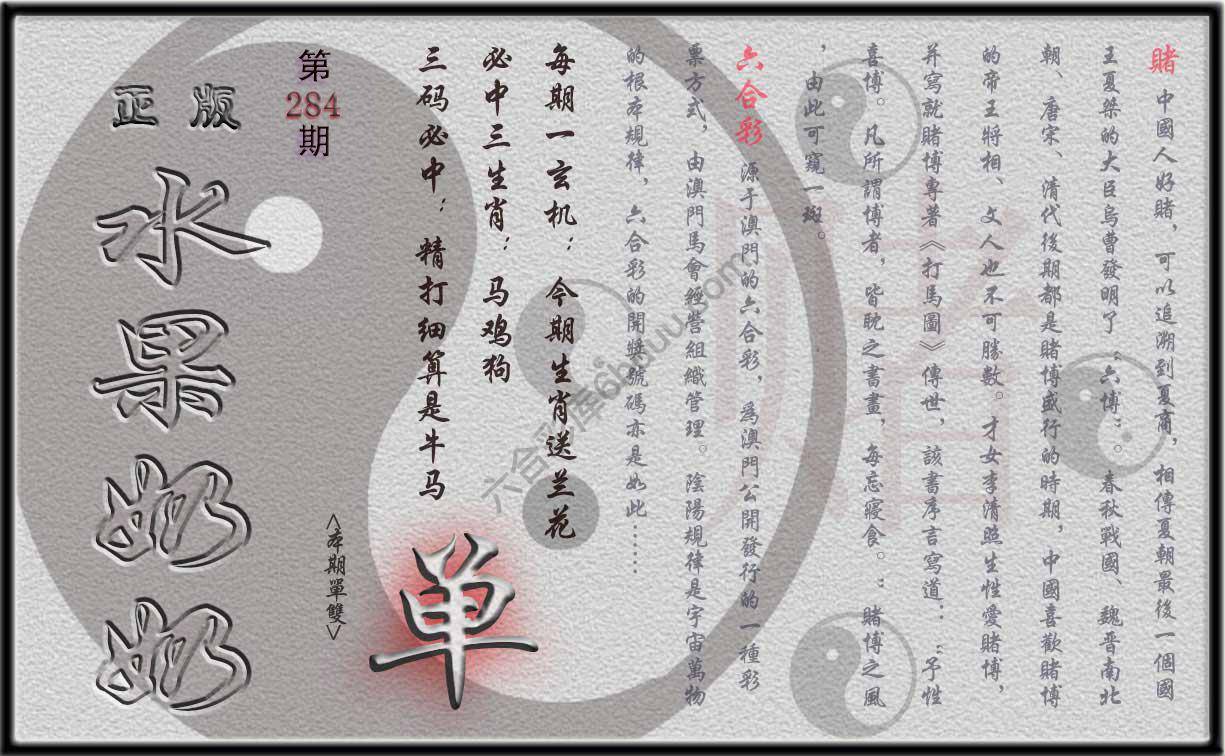 賭 中國人好賭，可以追溯到夏商，相傳夏朝最後一個國
王夏桀的大臣烏曹發明了“六博”。春秋戰國、魏晋南北
朝、唐宋、清代後期都是賭博盛行的時期，中國喜歡賭博
的帝王將相、文人也不可勝數。才女李清照生性愛賭博，
并寫就賭博專著《打馬圖》傳世，該書序言寫道：“予性
喜博。凡所謂博者，皆眈之書畫，每忘寢食。：賭博之風
，由此可窺一斑。
六合彩 源于澳門的六合彩，爲澳門公開發行的一種彩
票方式，由澳門馬會經營組織管理。陰陽規律是宇宙萬物
的根本規律，六合彩的開獎號碼亦是如此……
每期一玄机：今期生肖送兰花
必中三生肖：马鸡狗
三码必中：精打细算是牛马
单
<本期單雙>
第
284
期
正版
水果奶奶
赌
六合彩库6hduu.com